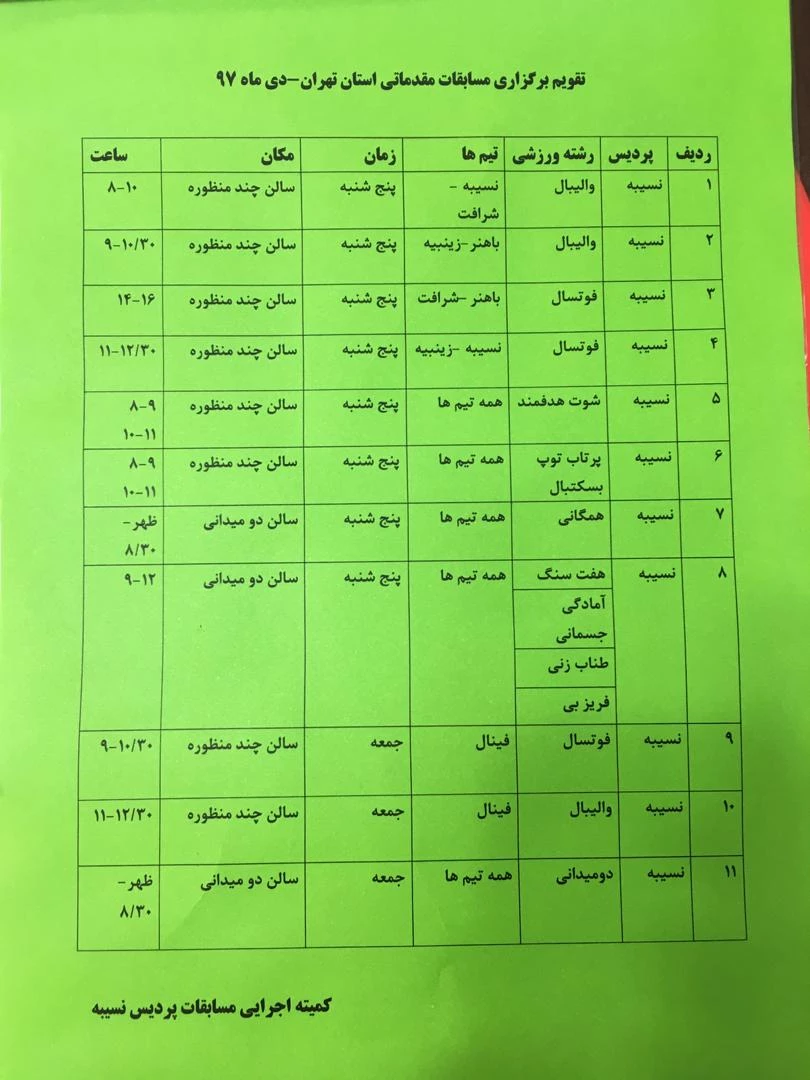 تقویم برگزاری مسابقات مقدماتی استان تهران-دی ماه ۹۷
ردیف پردیس رشته ورزشی تیم ها زمان مکان ساعت
۱ نسیبه والیبال نسیبه - پنج شنبه سالن چند منظوره ۸-۱۰
شرافت
۲ نسیبه والیبال باهنر-زینبیه پنج شنبه سالن چند منظوره ۹-۱۰/۳۰
۳ نسیبه فوتسال باهنر -شرافت پنج شنبه سالن چند منظوره ۱۴-۱۶
۴ نسیبه فوتسال نسیبه -زینبیه پنج شنبه سالن چند منظوره ۱۱-۱۲/۳۰
۵ نسیبه شوت هدفمند همه تیم ها پنج شنبه سالن چند منظوره ۸-۹
۱۰-۱۱
۶ نسیبه پرتاب توپ همه تیم ها پنج شنبه سالن چند منظوره ۸-۹
بسکتبال ۱۰-۱۱
۷ نسیبه همگانی همه تیم ها پنج شنبه سالن دو میدانی ظهر-
۸/۳۰
۸ نسیبه هفت سنگ همه تیم ها پنج شنبه سالن دو میدانی ۹-۱۲
آمادگی
جسمانی
طناب زنی
فریز بی
۹ نسیبه فوتسال فینال جمعه سالن چند منظوره ۹-۱۰/۳۰
۱۰ نسیبه والیبال فینال جمعه سالن چند منظوره ۱۱-۱۲/۳۰
۱۱ نسیبه دومیدانی همه تیم ها جمعه سالن دو میدانی ظهر-
۸/۳۰
کمیته اجرایی مسابقات پردیس نسیبه